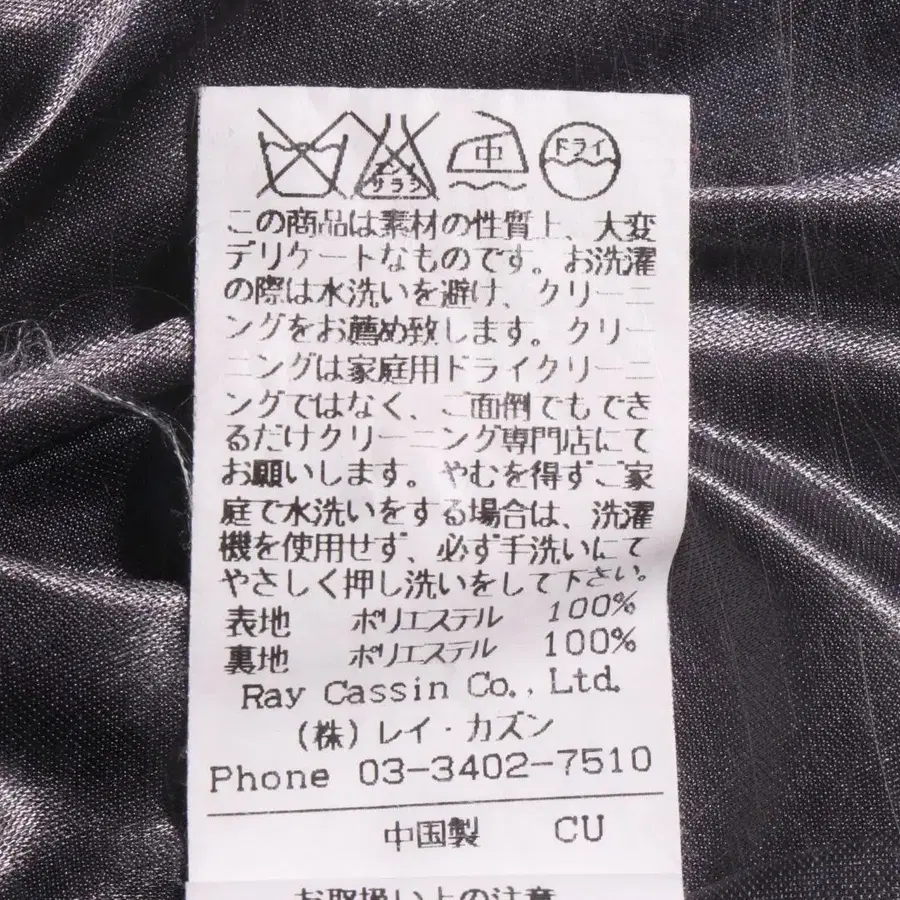 エンソ
サラシ
中
ドライ
この商品は素材の性質上、大変
デリケートなものです。お洗濯
の際は水洗いを避け、クリーニ
ングをお薦め致します。クリー
ニングは家庭用ドライクリーニ
ングではなく、ご面倒でもでき
るだけクリーニング専門店にて
お願いします。やむを得ずご家
庭で水洗いをする場合は、洗濯
機を使用せず、必ず手洗いにて
やさしく押し洗いをして下さい。
表地 ポリエステル 100%
裏地 ポリエステル 100%
Ray Cassin Co., Ltd.
(株)レイ・カズン
Phone 03-3402-7510
中国製 CU
お取扱い上の注意